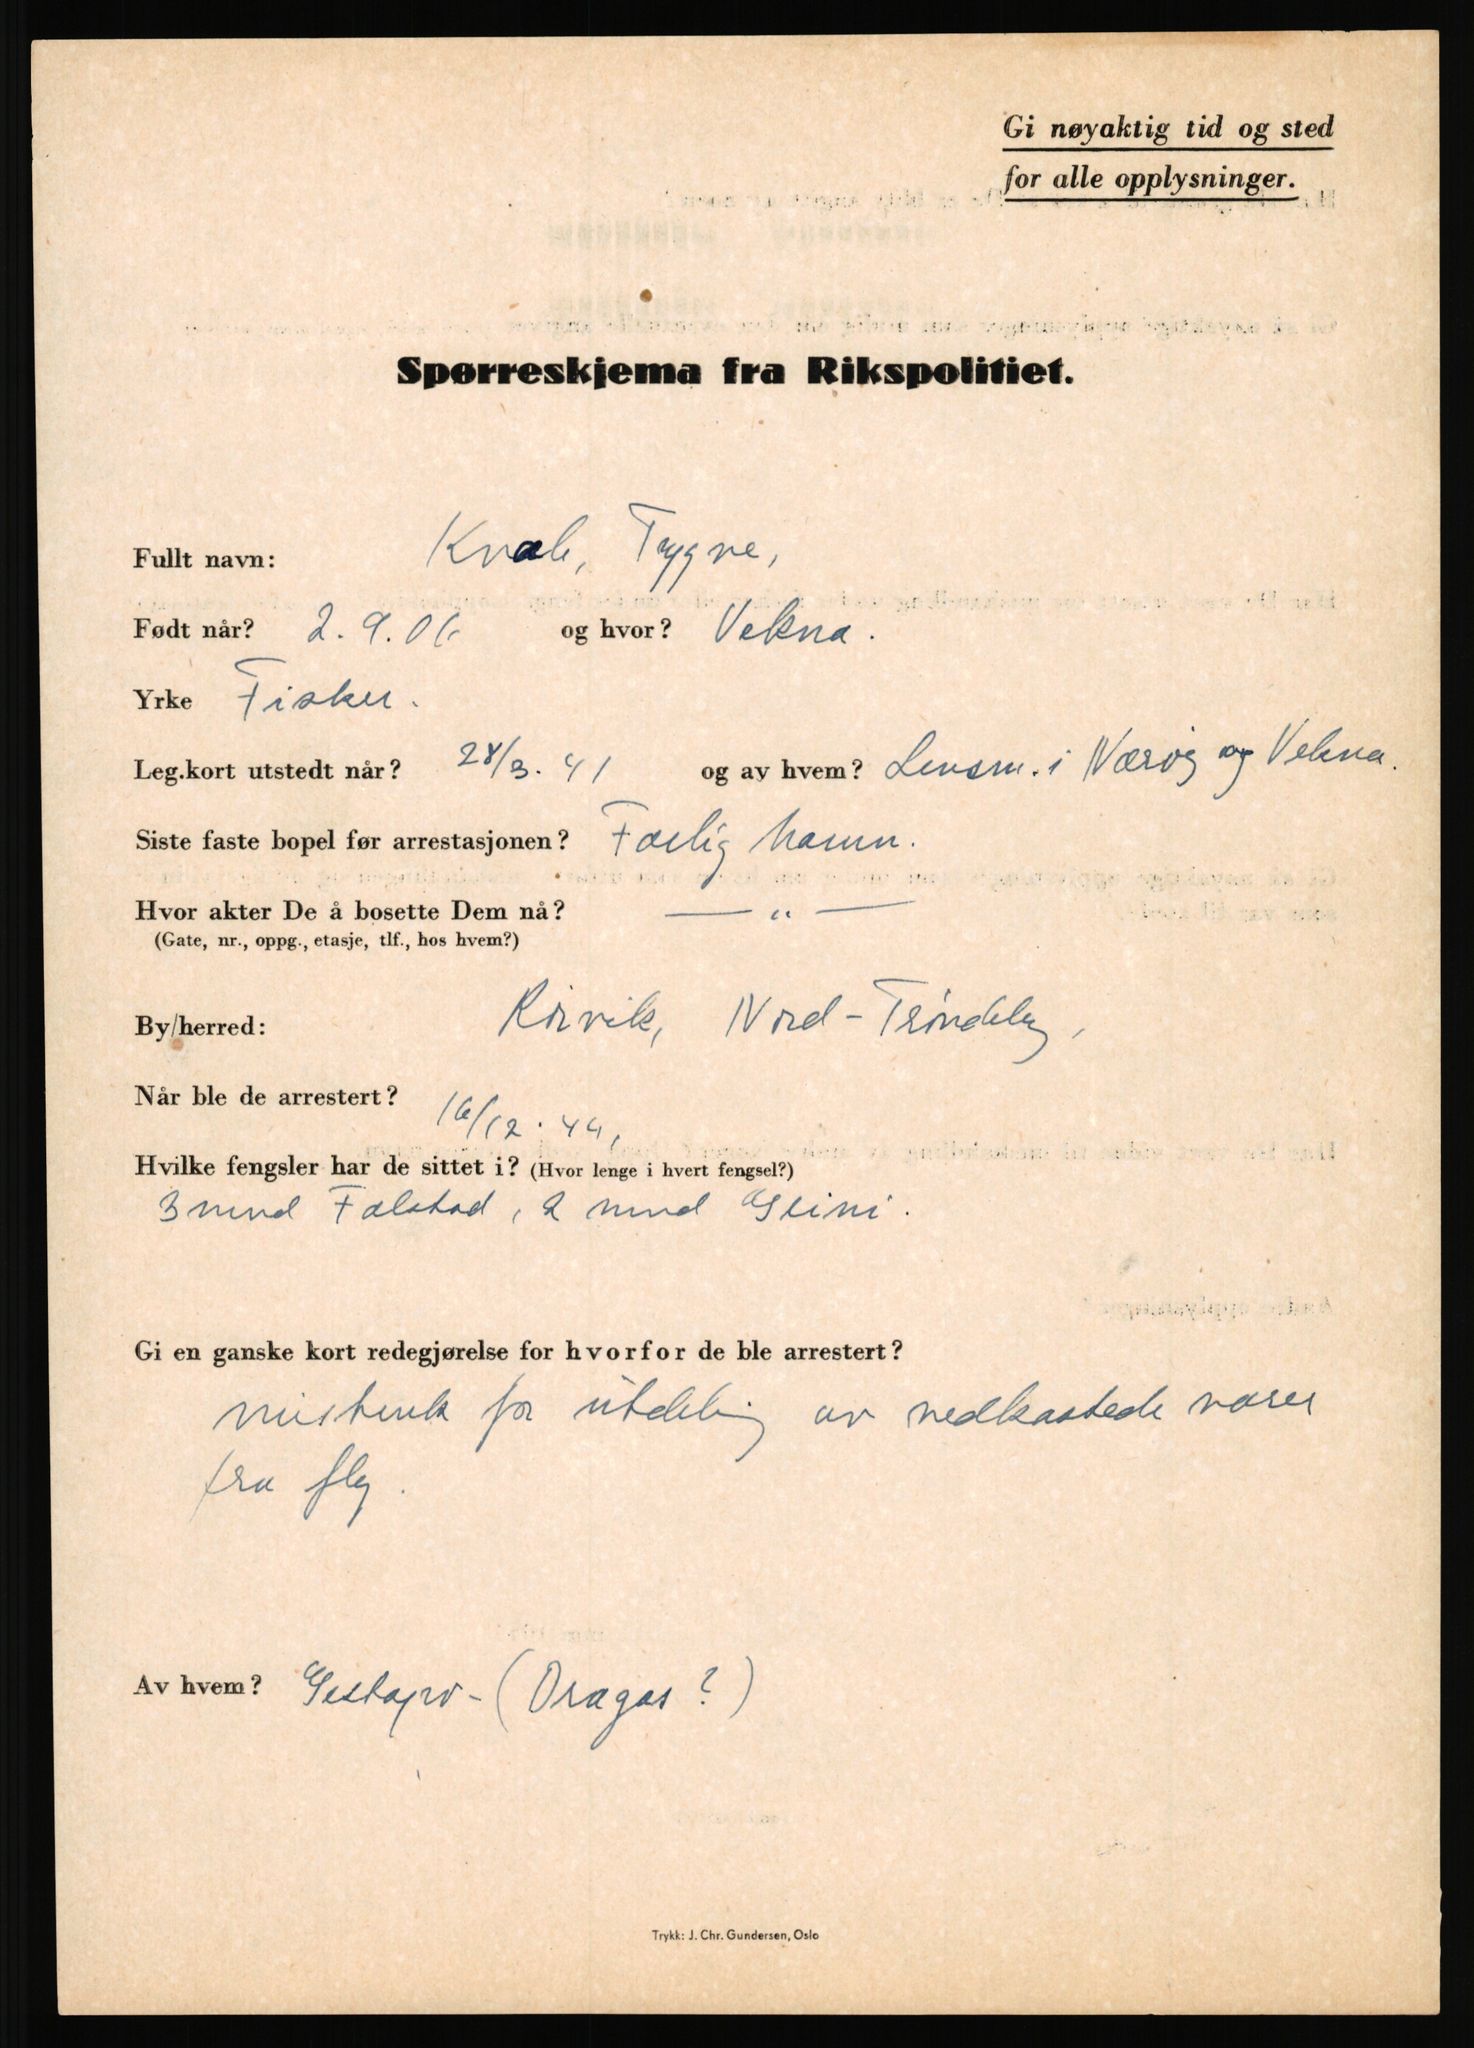 Gi nøyaktig tid og sted
for alle opplysninger.
Spørreskjema fra Rikspolitiet.
Fullt navn: Kvale, Trygve,
Født når? 2.9.06 og hvor? Vekna.
Yrke Fisker.
Leg.kort utstedt når? 28/3.41 og av hvem? Lensm. i Nærøy og Vekna.
Siste faste bopel før arrestasjonen? Farlig hamn.
Hvor akter De å bosette Dem nå? — " —
(Gate, nr., oppg., etasje, tlf., hos hvem?)
By/herred: Rørvik, Nord-Trøndelag,
Når ble de arrestert? 16/12.44,
Hvilke fengsler har de sittet i? (Hvor lenge i hvert fengsel?)
3 mnd Falstad, 2 mnd Grini.
Gi en ganske kort redegjørelse for hvorfor de ble arrestert?
mistenk for utdeling av nedkastede varer
fra fly.
Av hvem? Gestapo - (Dragas?)
Trykk: J. Chr. Gundersen, Oslo